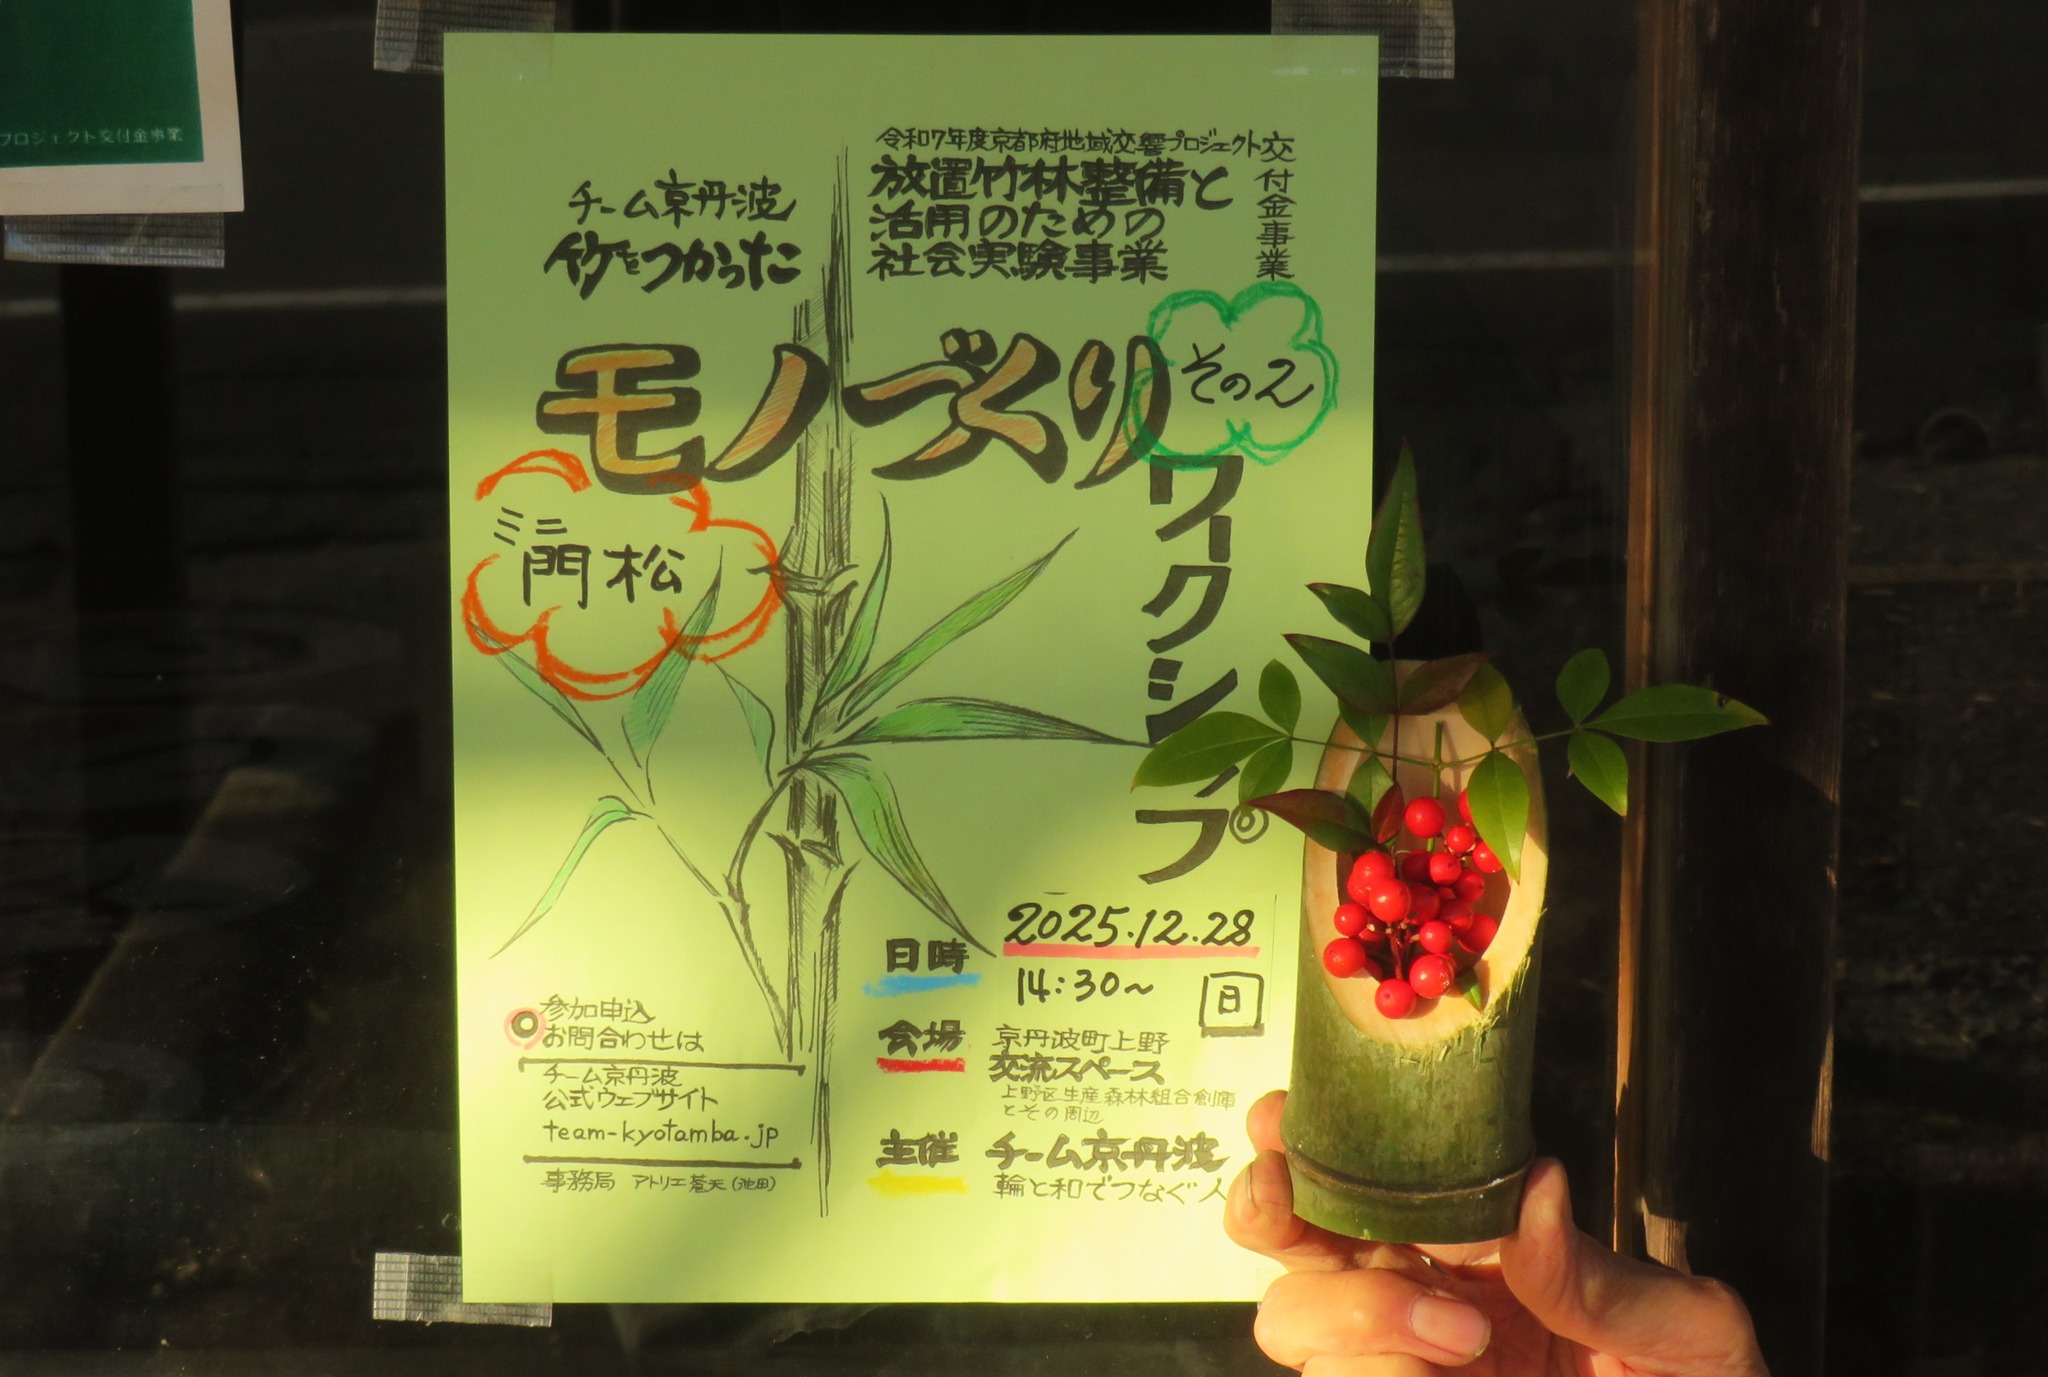 プロジェクト交付金事業
令和7年度京都府地域交響プロジェクト交付金事業
放置竹林整備と
活用のための
社会実験事業
チーム京丹波
竹をつかった
モノづくり
その2
ワークショップ
ミニ
門松
日時
2025.12.28
14:30〜
日
会場
京丹波町上野
交流スペース
上野区生産森林組合倉庫
とその周辺
主催
チーム京丹波
輪と和でつなぐ人
参加申込
お問合わせは
チーム京丹波
公式ウェブサイト
team-kyotamba.jp
事務局 アトリエ蒼天(池田)